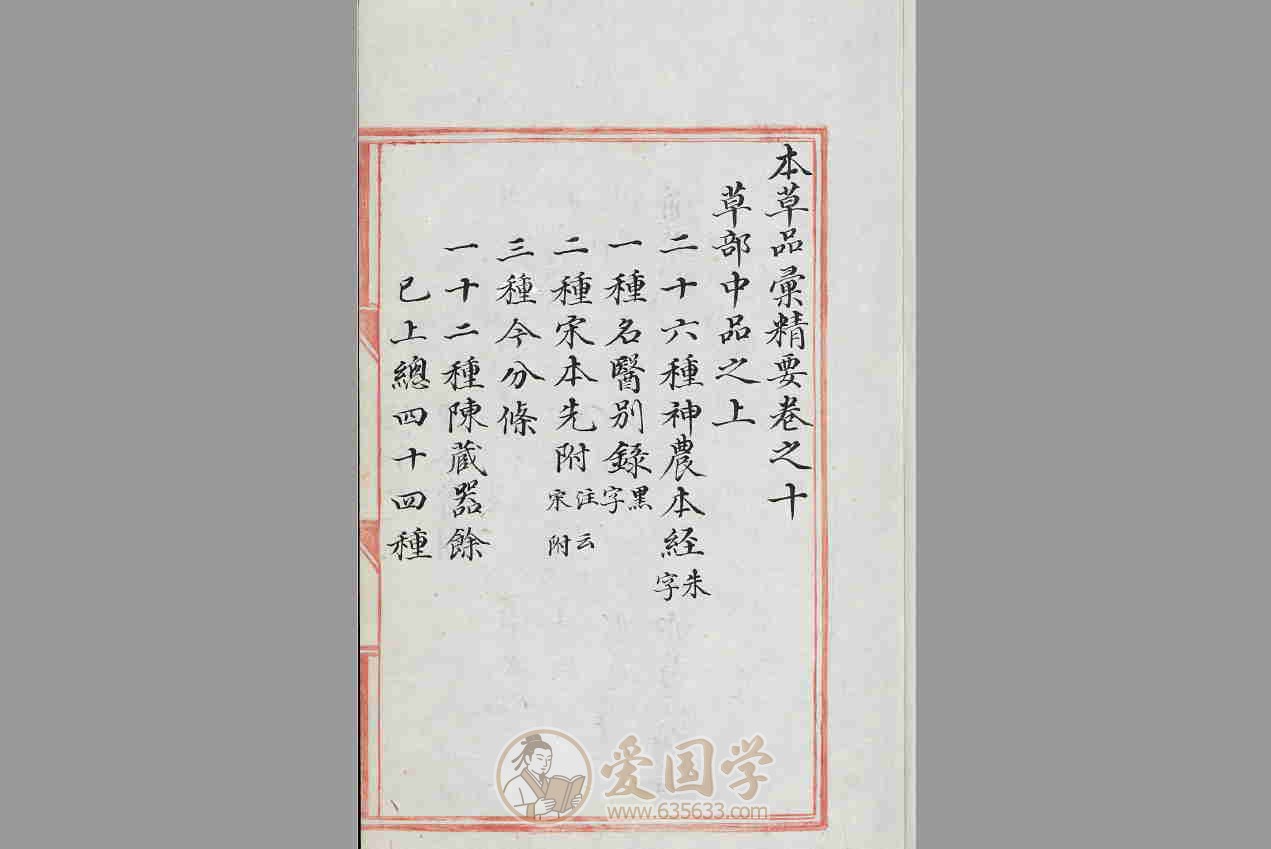 本草品彙精要卷之十
草部中品之上
二十六種神農本經朱字
一種名醫別錄黑字
二種宋本先附注云宋附
三種今分條
一十二種陳藏器餘
已上總四十四種
爱国学
www.635633.com